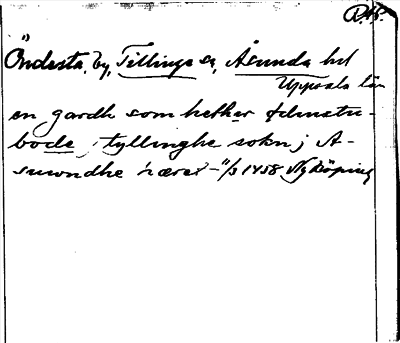 D.48.
Öndesta, by, Tillinge sn, Åsunda hd
Uppsala län
en gardh som hether
bode j tyllinghe sokn j A-
swndhe hæret – 11/3 1458 Nyköping